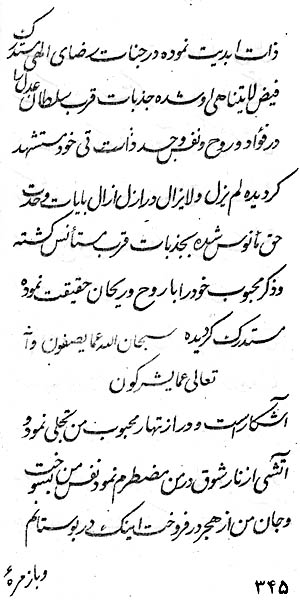 ذات ابدیت نموده در جنات رضای الهی مستدرک
فیض لایتناهی او شده جذبات قرب سلطان عدل را
در فؤاد و روح و نفس و جسد ذات تی خود مستشهد
کردیده لم یزل و لایزال در ازل ازال بایات وحدت
حق مأنوس شده بجذبات قرب مستأنس کشته
و ذکر محبوب خود را با روح و ریحان حقیقت نموده
مستدرک کردیده سبحان الله عما یصفون و
تعالی عما یشرکون
آشکار است و در از تنها محبوب من تجلی نمود و
آتشی از نار شوق در من مضطرم نمود نفس من بسوخت
و جان من از هجر در فروخت اینک در بوستانم
و باز مرة
۳۴۵